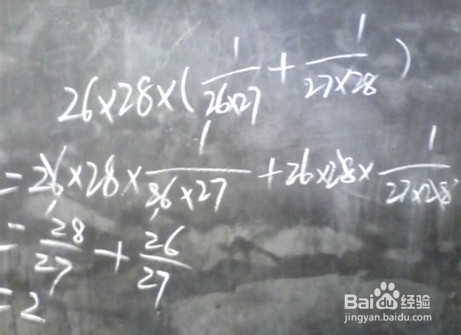 26×28×(1/26×27 + 1/27×28)
=26×28×1/26×27 +26×28×1/27×28
=28/27+26/27
=2
Baidu经验
jingyan.baidu.com